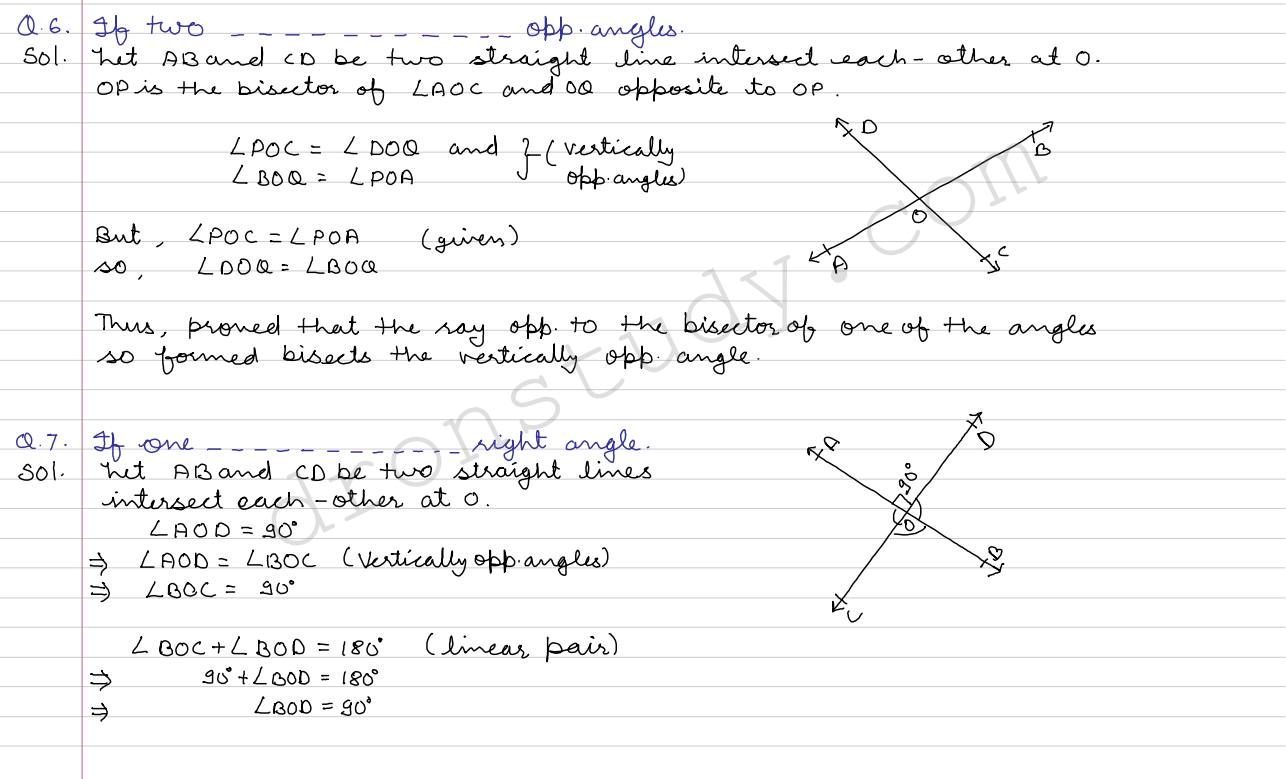 Q.6. If two _ _ _ _ _ _ _ _ _ _ _ _ opp. angles.
Sol. Let AB and CD be two straight line intersect each-other at O.
OP is the bisector of ∠AOC and OQ opposite to OP.
∠POC = ∠DOQ and } (vertically
∠BOQ = ∠POA opp. angles)
D
B
O
A
C
But, ∠POC = ∠POA (given)
so, ∠DOQ = ∠BOQ
Thus, proved that the ray opp. to the bisector of one of the angles
so formed bisects the vertically opp. angle.
Q.7. If one _ _ _ _ _ _ _ _ _ _ _ _ right angle.
Sol. Let AB and CD be two straight lines
intersect each-other at O.
∠AOD = 90°
⇒ ∠AOD = ∠BOC (Vertically opp. angles)
⇒ ∠BOC = 90°
A
D
90°
O
B
C
∠BOC + ∠BOD = 180° (linear pair)
⇒ 90° + ∠BOD = 180°
⇒ ∠BOD = 90°
dronstudy.com